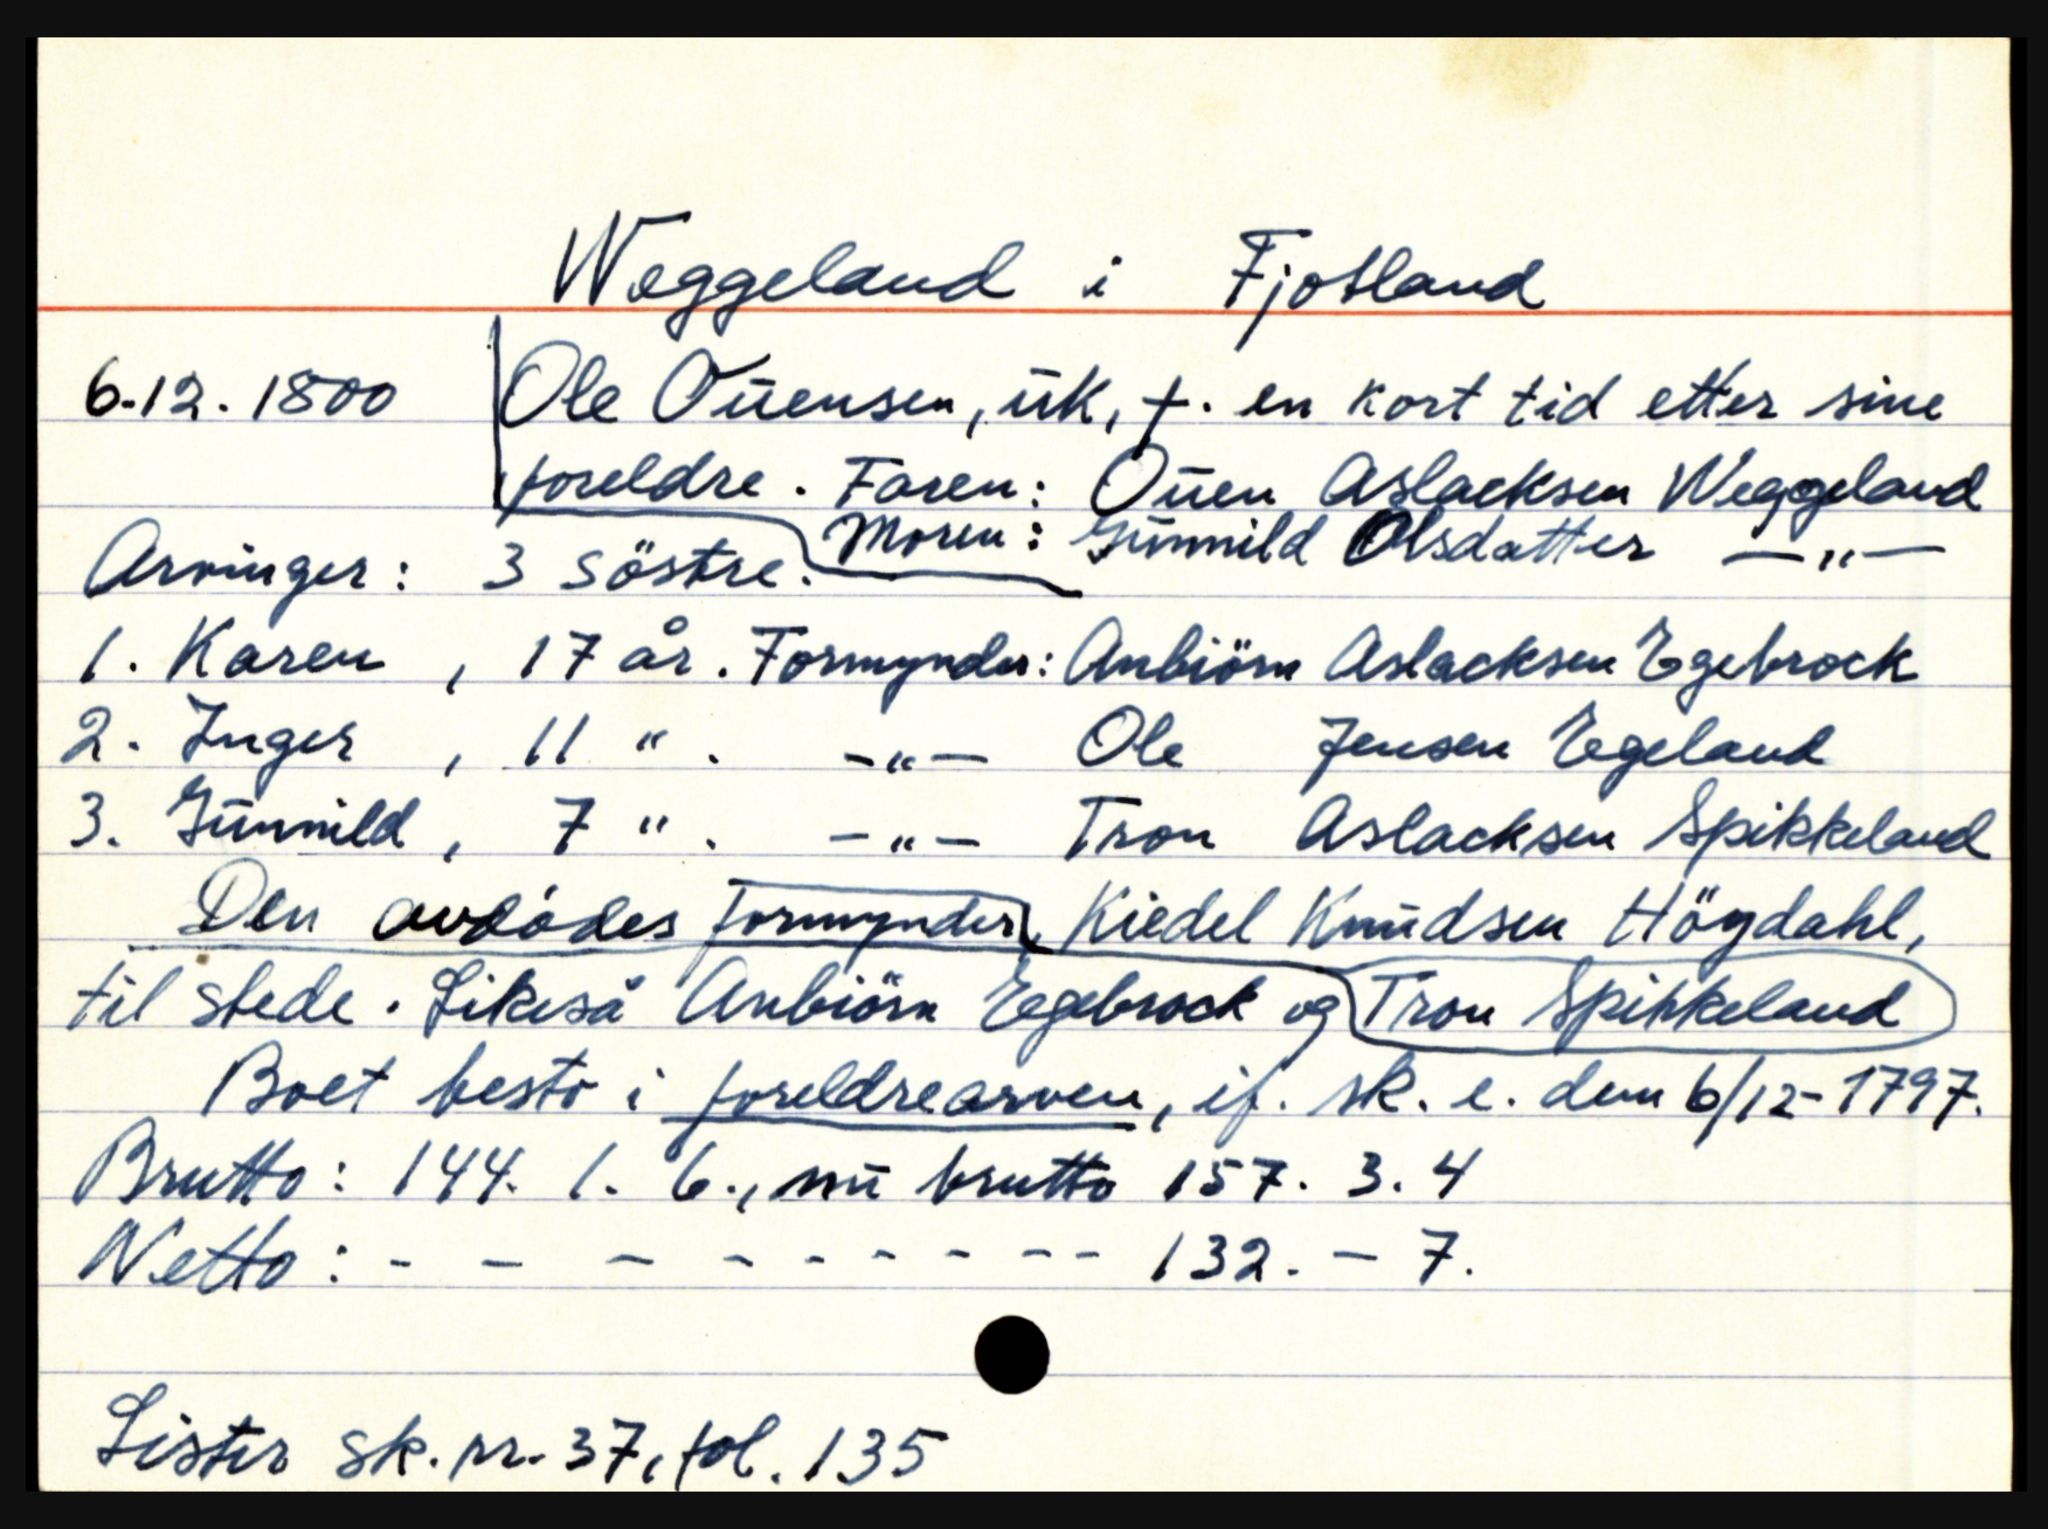 Weggeland i Fjotland
6.12.1800 Ole Ouensen, uk, †. en kort tid etter sine
foreldre. Faren: Ouen Aslacksen Weggeland
Moren: Gunnild Olsdatter —"—
Arvinger: 3 söstre.
1. Karen, 17 år. Formynder: Anbiörn Aslacksen Egebrock
2. Inger, 11 ". -"- Ole Jensen Egeland
3. Gunnild, 7 ". -"- Tron Aslacksen Spikkeland
Den avdödes formynder, Kiedel Knudsen Högdahl,
til stede. Likeså Anbiörn Egebrock og Tron Spikkeland
Boet besto i foreldrearven, if. sk. e. dem 6/12-1797.
Brutto: 144. 1. 6., nu brutto 157. 3. 4
Netto: - - - - - - - - - 132. - 7.
Lister sk. nr. 37, fol. 135